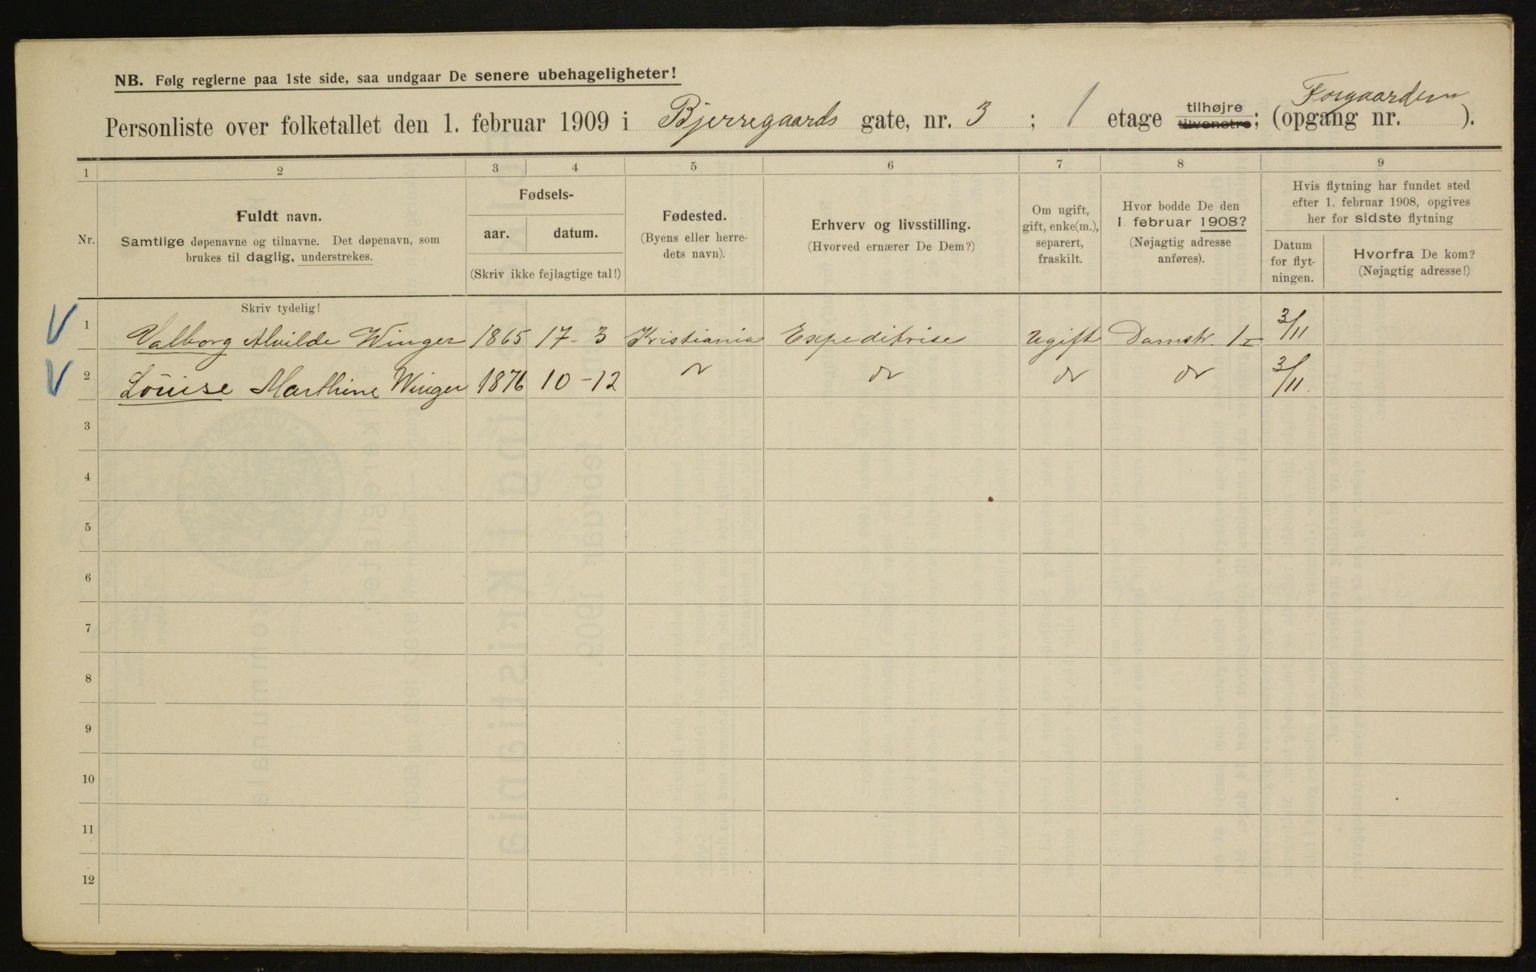 NB. Følg reglerne paa 1ste side, saa undgaar De senere ubehageligheter!
Personliste over folketallet den 1. februar 1909 i Bjerregaards gate, nr. 3 ; 1 etage tilhøjre tilvenstre; (opgang nr. Forgaarden ).
1 2 3 4 5 6 7 8 9
Nr.
Fuldt navn.
Samtlige døpenavne og tilnavne. Det døpenavn, som
brukes til daglig, understrekes.
Fødsels-
aar. datum.
(Skriv ikke fejlagtige tal!)
Fødested.
(Byens eller herre-
dets navn).
Erhverv og livsstilling.
(Hvorved ernærer De Dem?)
Om ugift,
gift, enke(m.),
separert,
fraskilt.
Hvor bodde De den
1. februar 1908?
(Nøjagtig adresse
anføres).
Hvis flytning har fundet sted
efter 1. februar 1908, opgives
her for sidste flytning
Datum
for flyt-
ningen.
Hvorfra De kom?
(Nøjagtig adresse!)
Skriv tydelig!
1 Valborg Alvilde Winger 1865 17-3 Kristiania Expeditrise Ugift Damstr. 1 I 3/11
2 Louise Marthine Winger 1876 10-12 " do do do 3/11.
3
4
5
6
7
8
9
10
11
12